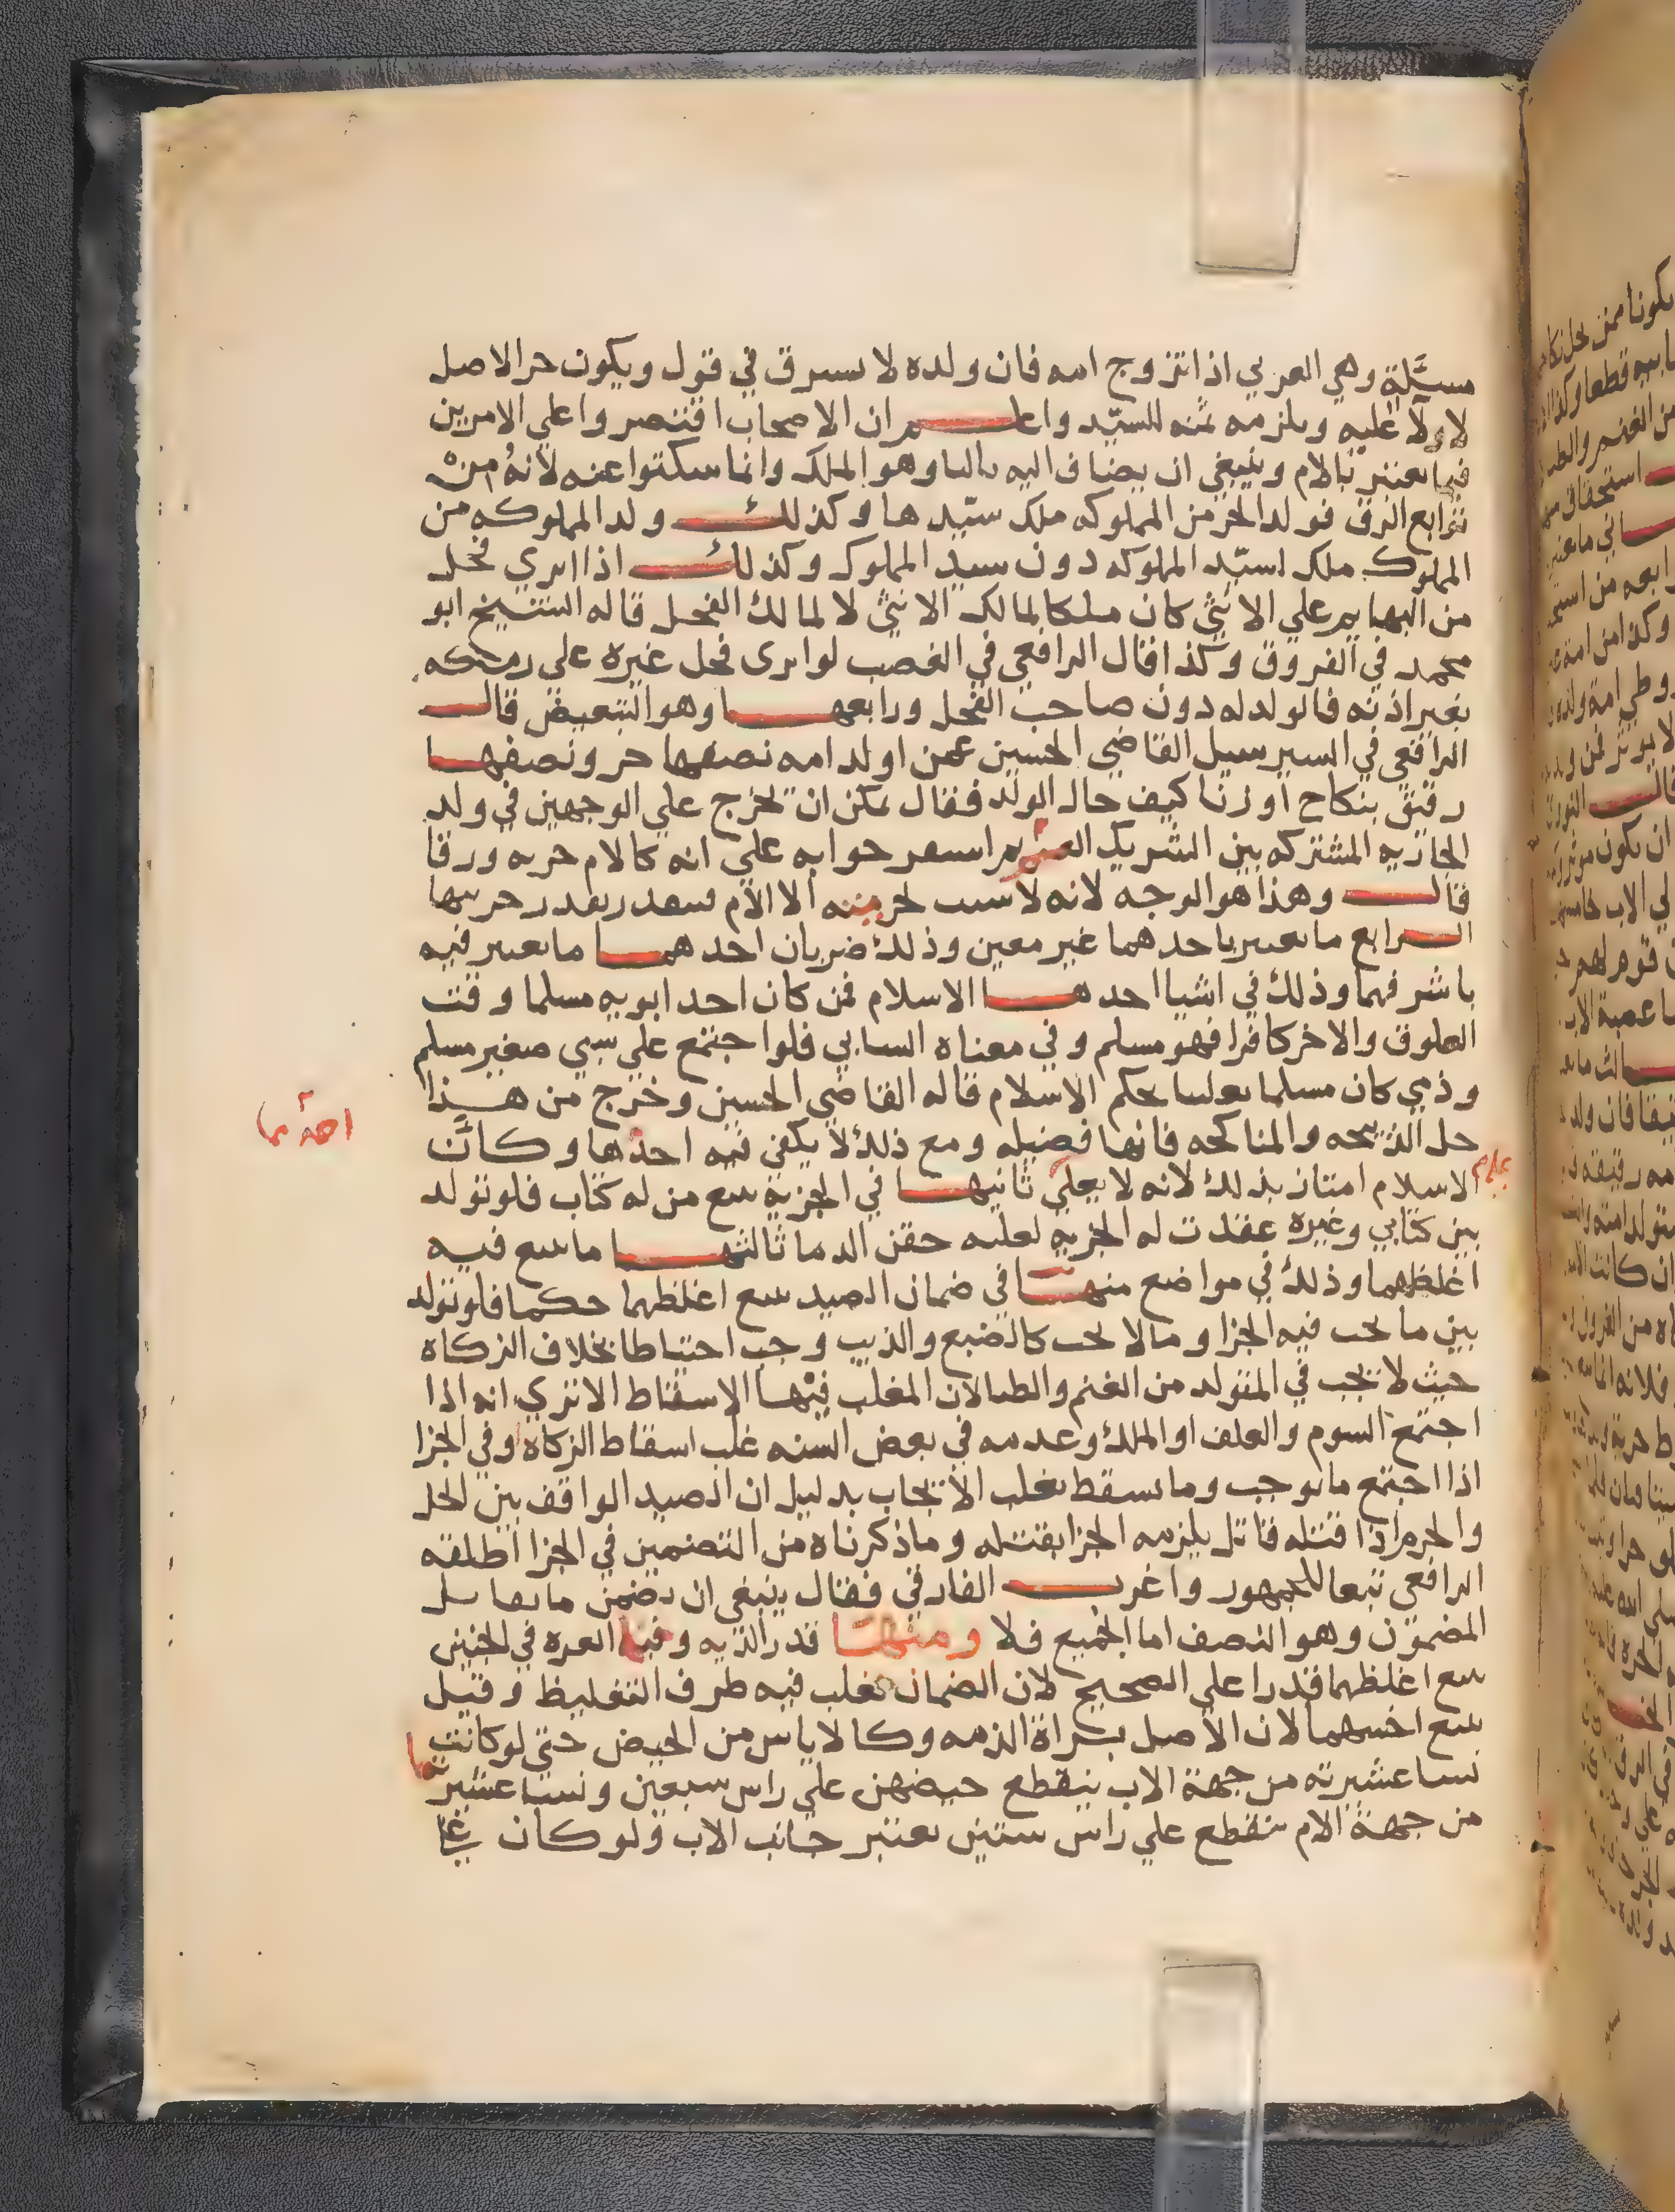 مسئلة وهي العربي اذا تزوج امه فان ولده لا يسرق في قول ويكون حر الاصل
لا ولا عليه ويلزمه ثمنه للسيد واعلم ان الاصحاب اقتصروا على الامرين
فيما يعتبر بالام وينبغي ان يضاف اليه ثالثا وهو الملك وانما سكتوا عنه لانه من
توابع الرق فولد الحر من المملوكه ملك سيدها وكذلك ولد المملوكه من
المملوك ملك لسيد المملوكه دون سيد المملوك وكذلك اذا انزي فحل
من البهايم على الانثى كان ملكا لمالك الانثى لا لمالك الفحل قاله الشيخ ابو
محمد في الفروق وكذا قال الرافعي في الغصب لو انزى فحل غيره على رمكه
بغير اذنه فالولد له دون صاحب الفحل ورابعها وهو التبعيض قال
الرافعي في السير سيل القاضي الحسين عمن اولد امه نصفها حر ونصفها
رقيق بنكاح او زنا كيف حال الولد فقال يمكن ان يخرج على الوجهين في ولد
الجاريه المشتركه بين الشريك المعسر ثم استقر جوابه على انه كالام حريه ورقا
قال وهذا هو الوجه لانه لا سبب لحريته الا الام فيتقدر بقدر حريتها
الرابع ما يعتبر باحدهما غير معين وذلك ضربان احدهما ما يعتبر فيه
باشرفهما وذلك في اشيا احدها الاسلام فمن كان احد ابويه مسلما وقت
العلوق والاخر كافرا فهو مسلم وفي معناه السابي فلو اجتمع على سبي صغير مسلم
وذمي كان مسلما تغليبا لحكم الاسلام قاله القاضي الحسين وخرج من هذا
حل الذبيحه والمناكحه فانها فضيله ومع ذلك لا يكفي فيه احدها وكان
احدهما
الاسلام امتاز بذلك لانه لا يعلى ثانيها في الجزيه يتبع من له كتاب فلو تولد
بين كتابي وغيره عقدت له الجزيه لعليه حقن الدما ثالثها ما يتبع فيه
اغلظهما وذلك في مواضع منها في ضمان الصيد يتبع اغلظهما حكما فلو تولد
بين ما يجب فيه الجزا وما لا يجب كالضبع والذيب وجب احتياطا بخلاف الزكاة
حيث لا تجب في المتولد من الغنم والظبا لان المغلب فيها الاسقاط الا تري انه اذا
اجتمع السوم والعلف او الملك وعدمه في بعض السنه غلب اسقاط الزكاة وفي الجزا
اذا اجتمع ما يوجب وما يسقط يغلب الايجاب بدليل ان الصيد الواقف بين الحل
والحرم اذا قتله قاتل يلزمه الجزا بقتله وما ذكرناه من التضمين في الجزا اطلقه
الرافعي تبعا للجمهور واغرب الفارقي فقال ينبغي ان يضمن ما يقابل
المضمون وهو النصف اما الجميع فلا ومنها قدر الديه وفيها الغره في الجنين
يتبع اغلظهما قدرا على الصحيح لان الضمان يغلب فيه طرف التغليظ وقيل
يتبع اخسهما لان الاصل براة الذمه وكالاياس من الحيض حتى لو كانت
نسا عشيرته من جهة الاب ينقطع حيضهن على راس سبعين ونسا عشيرتها
من جهة الام ينقطع على راس ستين يعتبر جانب الاب ولو كان